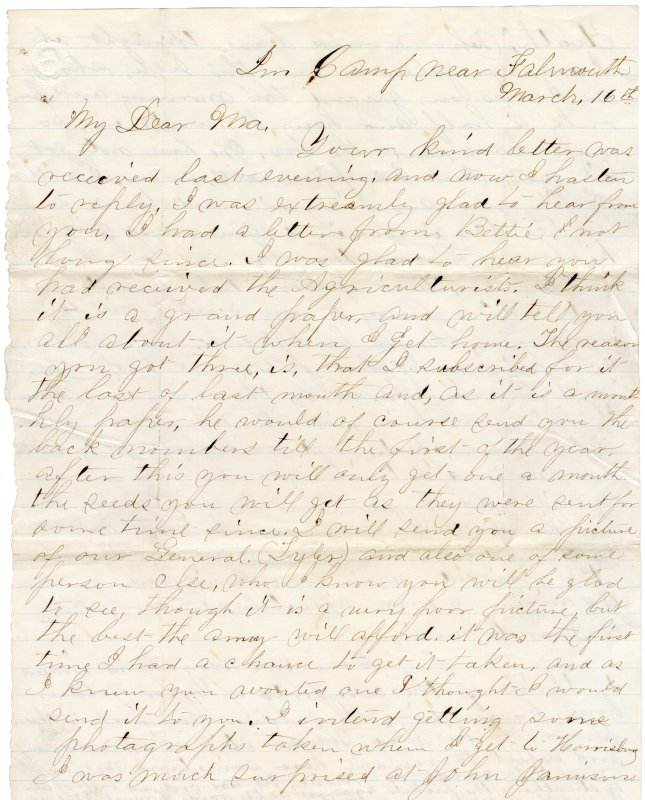 In Camp near Falmouth
March, 16th
My Dear Ma.
Your kind letter was
received last evening, and now I hasten
to reply. I was extreamly glad to hear from
you, I had a letter from Bettie not
long since. I was glad to hear you
had received the Agriculturists. I think
it is a grand paper, and will tell you
all about it when I get home. The reason
you got three, is, that I subscribed for it
the last of last month and, as it is a mont
hly paper, he would of course send you the
back nombers till the first of the year,
after this you will only get one a month
the seeds you will get as they were sent for
some time since. I will send you a picture
of our General. (Tyler) and also one of some
person else, who I know you will be glad
to see, though it is a very poor picture, but
the best the army will afford. it was the first
time I had a chance to get it taken, and as
I knew you wanted one I thought I would
send it to you. I intend getting some
photographs taken when I get to Harrisburg
I was much surprised at John Jamisons